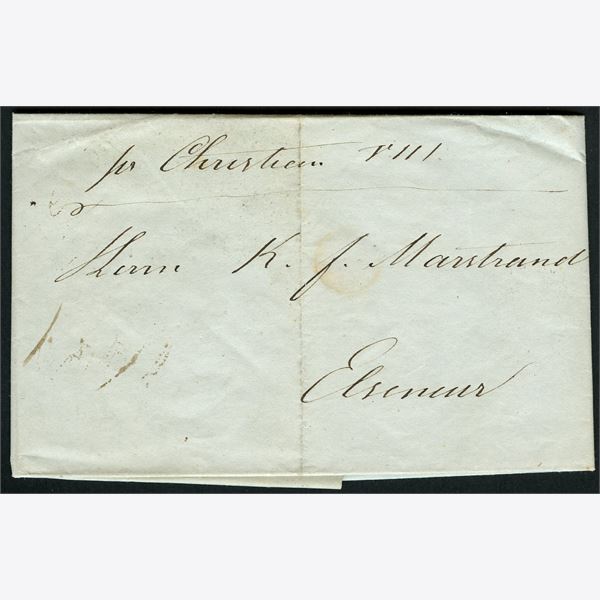 pr Christian VIII.
Herrn K. J. Marstrand
Elseneur